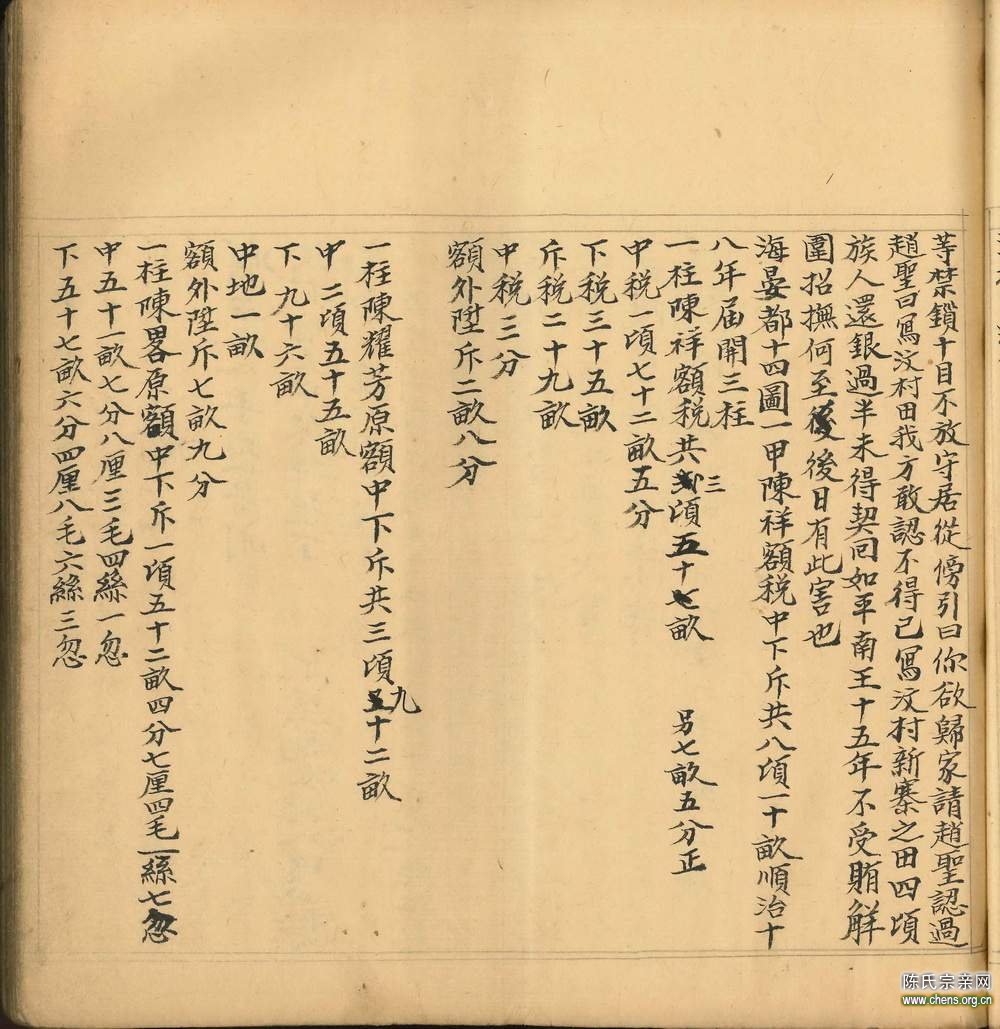 等禁鎖十日不放守居從傍引曰你欲歸家請趙聖認過
趙聖曰寫汶村田我方敢認不得已寫汶村新寨之田四頃
族人還銀過半未得契回如平南王十五年不受賄解
圍招撫何至後後日有此害也
海晏都十四圖一甲陳祥額稅中下斥共八頃一十畝順治十
八年届開三柱
一柱陳祥額稅共三頃五十畝 另七畝五分正
中稅一頃七十二畝五分
下稅三十五畝
斥稅二十九畝
中稅三分
額外陞斥二畝八分
一柱陳耀芳原額中下斥共三頃九十二畝
中二頃五十五畝
下九十六畝
中地一畝
額外陞斥七畝九分
一柱陳畧原額中下斥一頃五十二畝四分七厘四毛一絲七忽
中五十一畝七分八厘三毛四絲一忽
下五十七畝六分四厘八毛六絲三忽
陈氏宗亲网
www.chens.org.cn